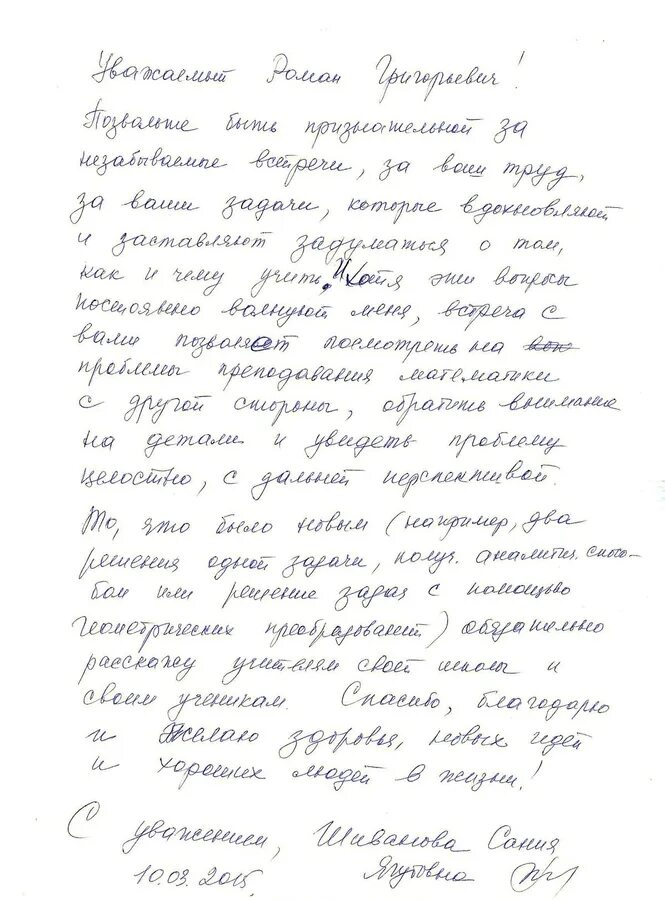 Уважаемый Роман Григорьевич!
Позвольте быть признательной за
незабываемые встречи, за ваш труд,
за ваши задачи, которые вдохновляют
и заставляют задуматься о том,
как и чему учить. И хотя эти вопросы
постоянно волнуют меня, встреча с
вами позволяет посмотреть на
проблемы преподавания математики
с другой стороны, обратить внимание
на детали и увидеть проблему
целостно, с дальней перспективой.
То, что было новым (например, два
решения одной задачи, получ. аналитич. спосо-
бом или решение задач с помощью
геометрических преобразований) обязательно
расскажу учителям своей школы и
своим ученикам. Спасибо, благодарю
и желаю здоровья, новых идей
и хороших людей в жизни!
С уважением, Шиванова Сания
10.03.2015. Ягутовна